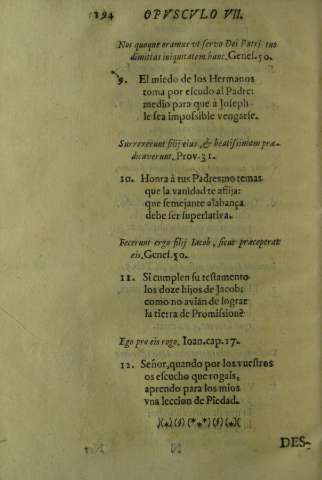 194 OPVSCVLO VII.
Nos quoque oramus vt servo Dei Patri tuo
dimittas iniquitatem hanc. Genes. 50.
9. El miedo de los Hermanos
toma por escudo al Padre:
medio para que à Joseph
le sea impossible vengarse.
Surrexerunt filij eius, & beatissimam præ-
dicaverunt. Prov. 31.
10. Honra à tus Padres; no temas
que la vanidad te aflija:
que semejante alabança
debe ser superlativa.
Fecerunt ergo filij Iacob, sicut præceperat
eis. Genes. 50.
11. Si cumplen su testamento
los doze hijos de Jacob:
como no avián de lograr
la tierra de Promission?
Ego pro eis rogo. Ioan. cap. 17.
12. Señor, quando por los vuestros
os escucho que rogais,
aprendo para los mios
vna leccion de Piedad.
DES-